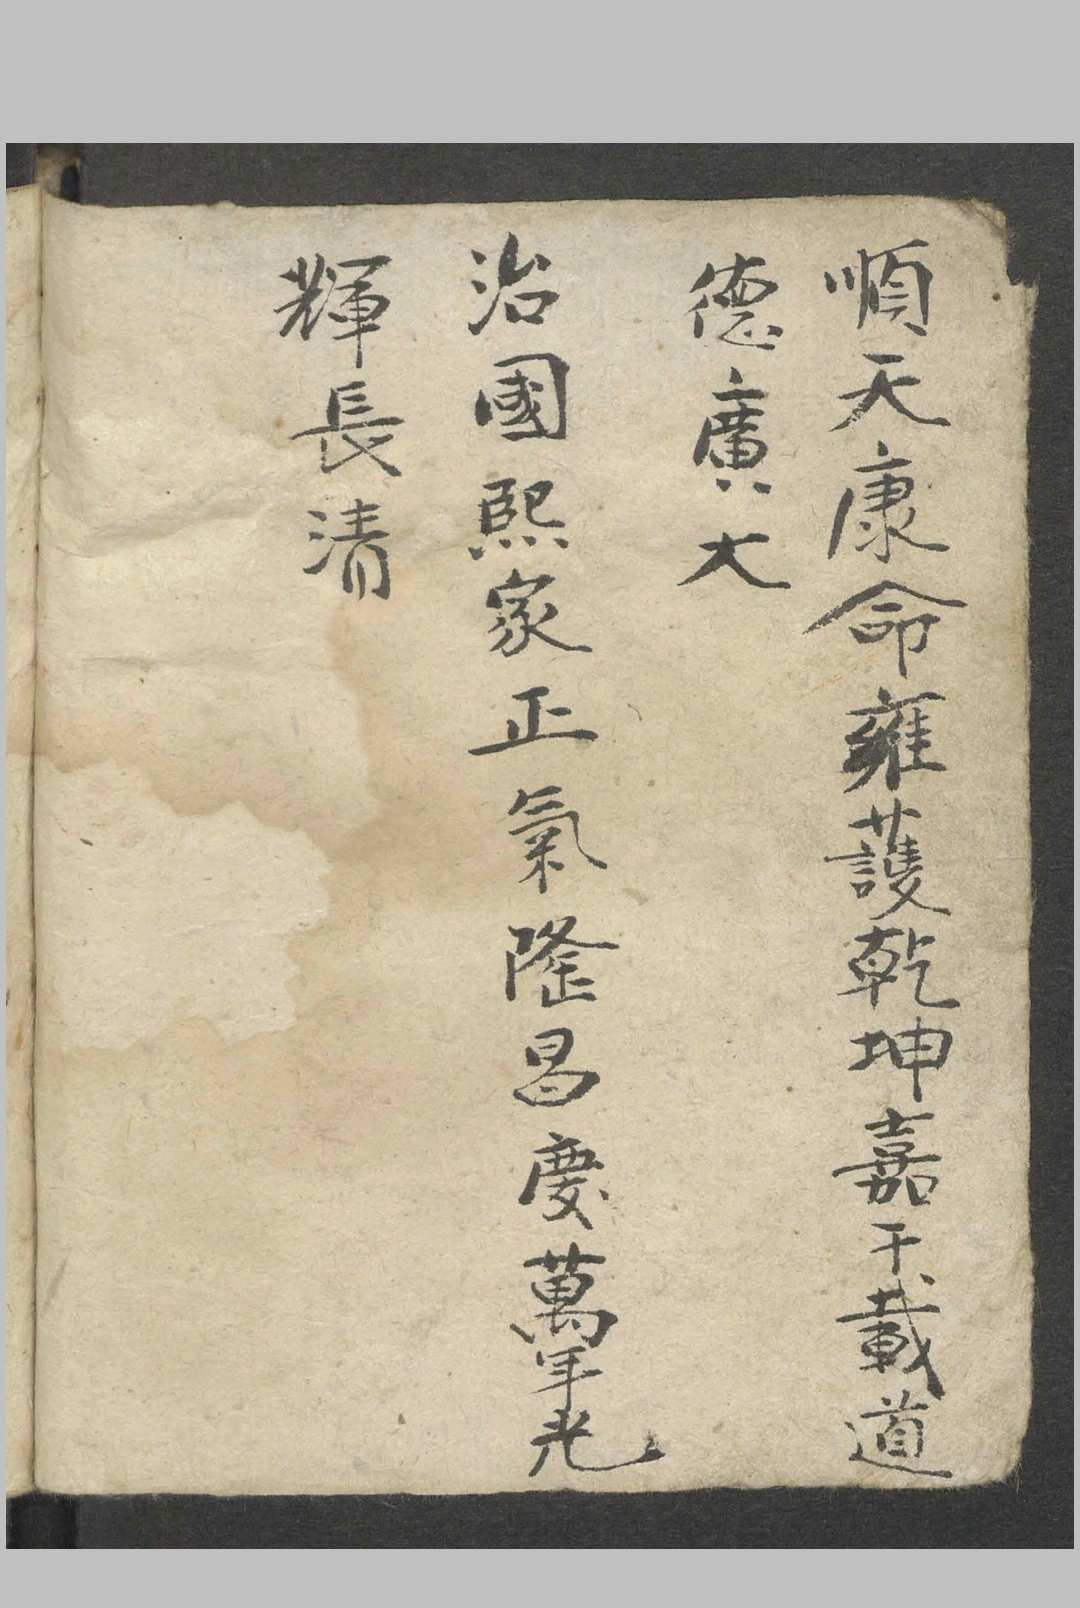 順天康命雍護乾坤嘉千載道
德廣大
治國熙家正氣隆昌慶萬年光
輝長清